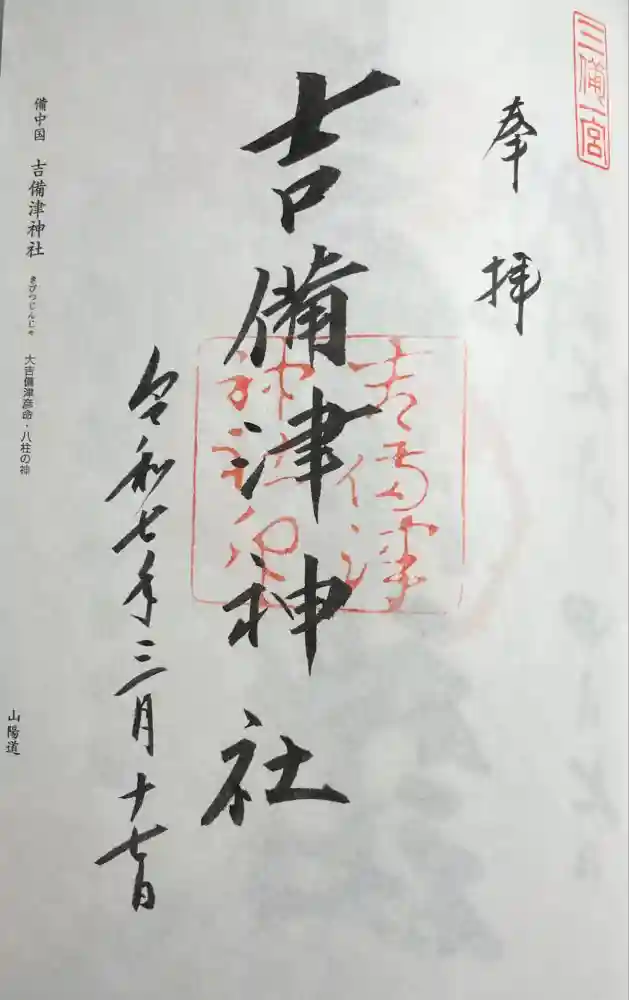 三備一宮
奉拝
吉備津神社
吉備津
神社印
令和七年三月十七日
備中国 吉備津神社 きびつじんじゃ 大吉備津彦命・八柱の神
山陽道